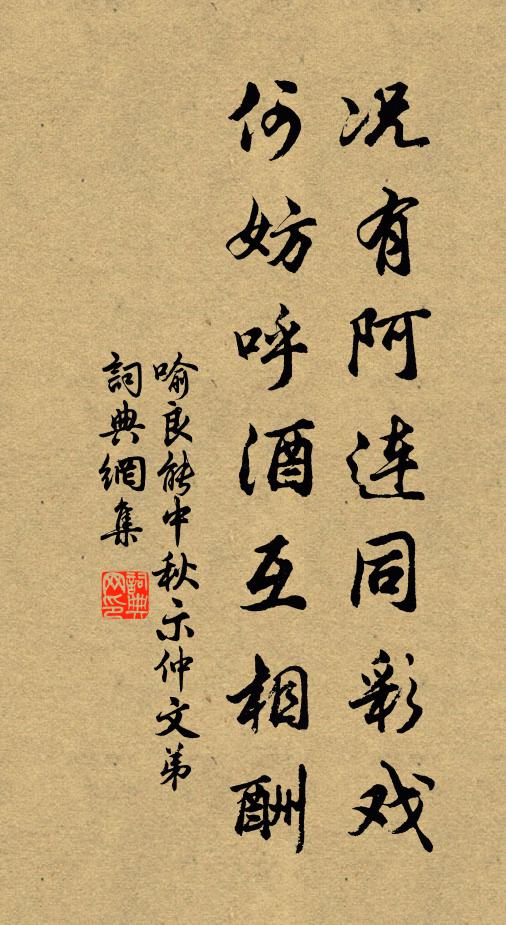 况有阿连同彩戏
何妨呼酒互相酬
喻良能中秋示仲文弟
詞典網集
詞典网印